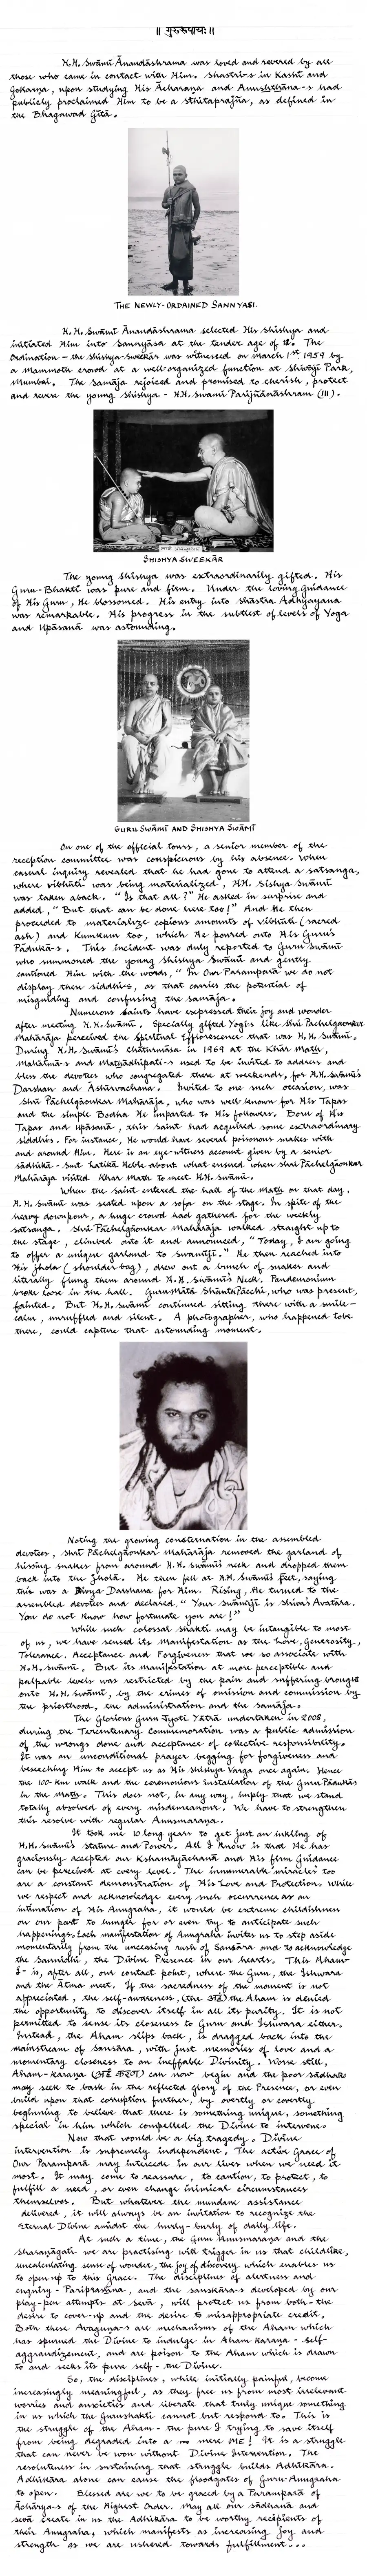 ॥ गुरुरुपायः॥
H.H. Swāmī Ānandāshrama was loved and revered by all
those who came in contact with Him. Shastri-s in Kashi and
Gokarna, upon studying His Ācharaṇa and Anushṭhāna-s had
publicly proclaimed Him to be a Sthitaprajña, as defined in
the Bhagawad Gītā.
THE NEWLY-ORDAINED SANNYASI.
H.H. Swāmī Ānandāshrama selected His Shishya and
initiated Him into Sannyāsa at the tender age of 12. The
Ordination – the Shishya-sweekār was witnessed on March 1st 1959 by
a mammoth crowd at a well-organized function at Shivājī Park,
Mumbai. The Samāja rejoiced and promised to cherish, protect
and revere the young Shishya - H.H. Swami Parijñānāshram (III).
SHISHYA SWEEKĀR
The young Shishya was extraordinarily gifted. His
Guru-Bhakti was pure and firm. Under the loving guidance
of His Guru, He blossomed. His entry into Shāstra Adhyayana
was remarkable. His progress in the subtlest of levels of Yoga
and Upāsanā was astounding.
GURU SWĀMĪ AND SHISHYA SWĀMĪ
On one of the official tours, a senior member of the
reception committee was conspicuous by his absence. When
casual inquiry revealed that he had gone to attend a satsanga,
where vibhūti was being materialized, H.H. Shishya Swāmī
was taken aback. "Is that all?" He asked in surprise and
added, "But that can be done here too!" And He then
proceeded to materialize copious amounts of vibhūti (sacred
ash) and Kumkum too, which He poured onto His Guru's
Pādukā-s. This incident was duly reported to Guru Swāmī
who summoned the young Shishya Swāmī and gently
cautioned Him with the words, "In Our Paramparā we do not
display these siddhis, as that carries the potential of
misguiding and confusing the samāja.
Numerous Saints have expressed their joy and wonder
after meeting H.H. Swāmī. Specially gifted Yogis like Shrī Pāchelgāonkar
Mahārāja perceived the Spiritual Efflorescence that was H.H. Swāmī.
During H.H. Swāmī's Chāturmāsa in 1969 at the Khār Maṭh,
Mahātmā-s and Maṭhādhipati-s used to be invited to address and
bless the devotees who congregated there at weekends, for H.H. Swāmī's
Darshan and Āshirvachana. Invited to one such occasion, was
Shrī Pāchelgāonkar Mahārāja, who was well known for His Tapas
and the simple Bodha He imparted to His followers. Born of His
Tapas and upāsanā, this saint had acquired some extraordinary
siddhis. For instance, He would have several poisonous snakes with
and around Him. Here is an eye-witness account given by a senior
sādhikā - Smt Latikā Heble about what ensued when Shrī Pāchelgāonkar
Mahārāja visited Khar Math to meet H.H. Swāmī.
When the saint entered the hall of the Maṭh on that day,
H.H. Swāmī was seated upon a sofa on the stage. In spite of the
heavy downpour, a huge crowd had gathered for the weekly
satsanga. Shrī Pāchelgāonkar Mahārāja walked straight up to
the stage, climbed onto it and announced, "Today, I am going
to offer a unique garland to Swamījī." He then reached into
His Jhola (shoulder bag), drew out a bunch of snakes and
literally flung them around H.H. Swāmī's Neck. Pandemonium
broke loose in the hall. Gurumātā Shāntā Pacchi, who was present,
fainted. But H.H. Swāmī continued sitting there with a smile -
calm, unruffled and silent. A photographer, who happened to be
there, could capture that astounding moment.
Noting the growing consternation in the assembled
devotees, Shrī Pāchelgāonkar Mahārāja removed the garland of
hissing snakes from around H.H. Swāmī's neck and dropped them
back into the Jholā. He then fell at H.H. Swāmī's Feet, saying
this was a Divya Darshana for Him. Rising, He turned to the
assembled devotees and declared, "Your Swāmījī is Shiva's Avatāra.
You do not know how fortunate you are!"
While such colossal shakti may be intangible to most
of us, we have sensed its Manifestation as the Love, Generosity,
Tolerance, Acceptance and Forgiveness that we so associate with
H.H. Swāmī. But its manifestation at more perceptible and
palpable levels was restricted by the pain and suffering brought
onto H.H. Swāmī, by the crimes of omission and commission by
the priesthood, the administration and the samāja.
The Glorious Guru Jyoti Yātrā undertaken in 2008,
during the Tercentenary Commemoration was a public admission
of the wrongs done and acceptance of collective responsibility.
It was an unconditional prayer begging for forgiveness and
beseeching Him to accept us as His Shishya Varga once again. Hence
the 100-km walk and the ceremonious installation of the Guru Pādukās
in the Math. This does not, in any way, imply that we stand
totally absolved of every misdemeanour. We have to strengthen
this resolve with regular Anusmaraṇa.
It took me 10 long years to get just an inkling of
H.H. Swāmī's Stature and Power. All I know is that He has
graciously accepted our Kshamāyāchanā and His firm Guidance
can be perceived at every level. The innumerable 'miracles' too
are a constant demonstration of His Love and Protection. While
we respect and acknowledge every such occurrence as an
intimation of His Anugraha, it would be extreme childishness
on our part to hunger for or even try to anticipate such
happenings. Each manifestation of Anugraha invites us to step aside
momentarily from the unceasing rush of Sansāra and to acknowledge
the Sannidhi, the Divine Presence in our hearts. This Aham-
I - is, after all, our contact point, where the Guru, the Ishwara
and the Ātmā meet. If the sacredness of the moment is not
appreciated, the self-awareness, (the अहं) the Aham is denied
the opportunity to discover itself in all its purity. It is not
permitted to sense its closeness to Guru and Ishwara either.
Instead, the Aham slips back, is dragged back into the
mainstream of sansāra, with just memories of love and a
momentary closeness to an ineffable Divinity. Worse still,
Aham-karaṇa (अहं करण) can now begin and the poor sādhaka
may seek to bask in the reflected glory of the Presence, or even
build upon that corruption further, by overtly or covertly
beginning to believe that there is something unique, something
special in him which compelled the Divine to intervene.
Now that would be a big tragedy. Divine
intervention is supremely independent. The active Grace of
Our Paramparā may intercede in our lives when we need it
most. It may come to reassure, to caution, to protect, to
fulfill a need, or even change inimical circumstances
themselves. But whatever the mundane assistance
delivered, it will always be an invitation to recognize the
Eternal Divine amidst the hurly-burly of daily life.
At such a time, the Guru Anusmaraṇa and the
Sharaṇāgati we are practising will trigger in us that childlike,
uncalculating sense of wonder, the joy of discovery which enables us
to open up to this Grace. The disciplines of alertness and
enquiry - Pariprashna, and the sanskāra-s developed by our
play-pen attempts at Sevā, will protect us from both - the
desire to cover-up and the desire to misappropriate credit.
Both these Avaguṇa-s are mechanisms of the Aham which
has spurned the Divine to indulge in Aham karaṇa - self-
aggrandizement, and are poison to the Aham which is drawn
to and seeks its pure self - the Divine.
So, the disciplines, while initially painful, become
increasingly meaningful, as they free us from most irrelevant
worries and anxieties and liberate that truly unique something
in us which the Gurushakti cannot but respond to. This is
the struggle of the Aham - the pure I trying to save itself
from being degraded into a mere ME! It is a struggle
that can never be won without Divine Intervention. The
resoluteness in sustaining that struggle builds Adhikāra.
Adhikāra alone can cause the floodgates of Guru-Anugraha
to open. Blessed are we to be graced by a Paramparā of
Āchārya-s of the Highest Order. May all our sādhanā and
sevā create in us the Adhikāra to be worthy recipients of
their Anugraha, which manifests as increasing joy and
strength as we are ushered towards fulfillment...